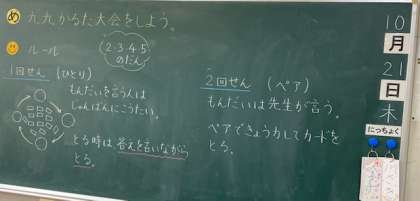 め 九九かるた大会をしよう。
ルール
2・3・4・5
のだん
1回せん (ひとり)
もんだいを言う人は
じゅんばんにこうたい。
とる時は 答えを言いながら
とる。
2回せん (ペア)
もんだいは先生が言う。
ペアできょう力してカードを
とろ。
10
月
21
日
木
にっちょく